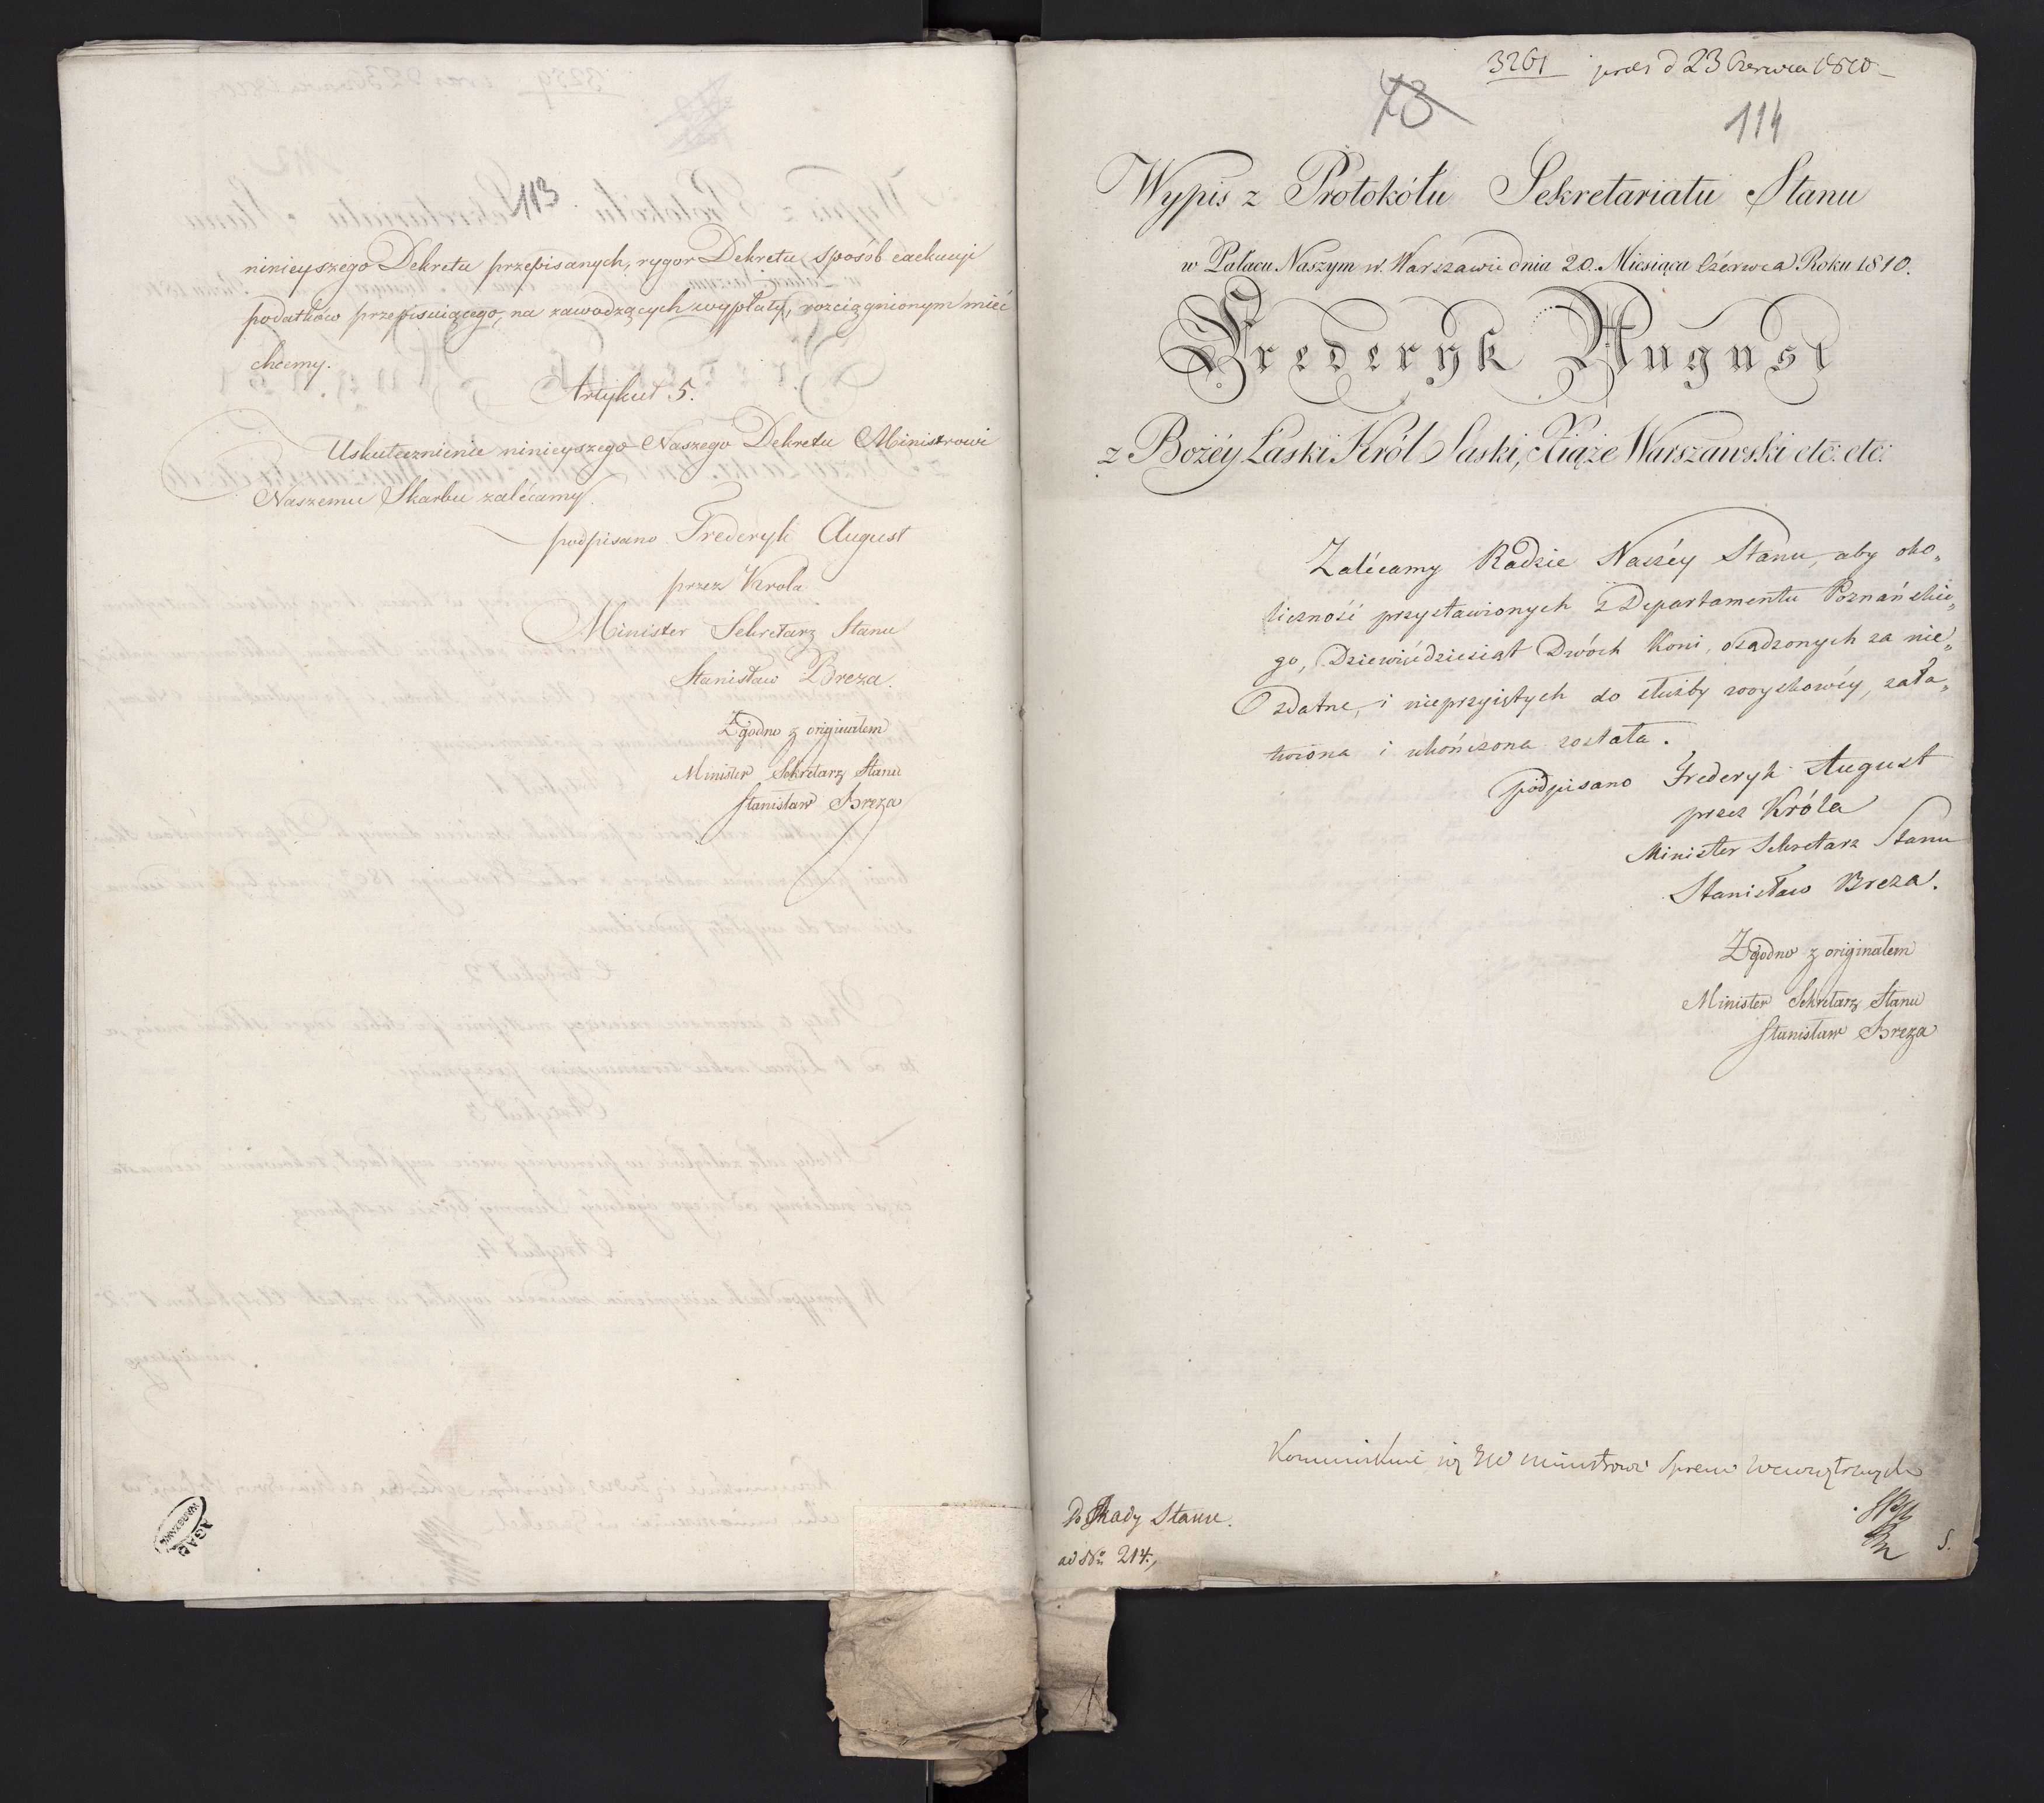 113
ninieyszego Dekretu przepisanych, rygor Dekretu sposób exekucyi
podatków przepisuiącego, na zawodzących wypłaty, rozciągnionym mieć
chcemy.
Artykuł 5.
Uskutecznienie ninieyszego Naszego Dekretu Ministrowi
Naszemu Skarbu zalécamy.
podpisano Frederyk August
przez Króla
Minister Sekretarz Stanu
Stanisław Breza.
Zgodno z originałem
Minister Sekretarz Stanu
Stanisław Breza
AGAD
WARSZAWA
3261 praes d 23 Czerwca 1810
73
114
Wypis z Protokółu Sekretariatu Stanu
w Pałacu Naszym w Warszawie dnia 20. Miesiąca Czérwca Roku 1810.
Frederyk August
z Bożéy Łaski Król Saski, Xiąże Warszawski etc: etc:
Zalécamy Radzie Naszéy Stanu, aby oko„
liczność przystawionych z Departamentu Poznańskie„
go, Dziewięćdziesiąt Dwóch Koni, osądzonych za nie„
zdatne, i nieprzyiętych do służby woyskowéy, zała„
twiona i ukończona została.
podpisano Frederyk August
przez Króla
Minister Sekretarz Stanu
Stanisław Breza.
Zgodno z originałem
Minister Sekretarz Stanu
Stanisław Breza
Ministrowi Spraw Wewnętrznych
Do Rady Stanu.
ad Nrũ 214.
S.